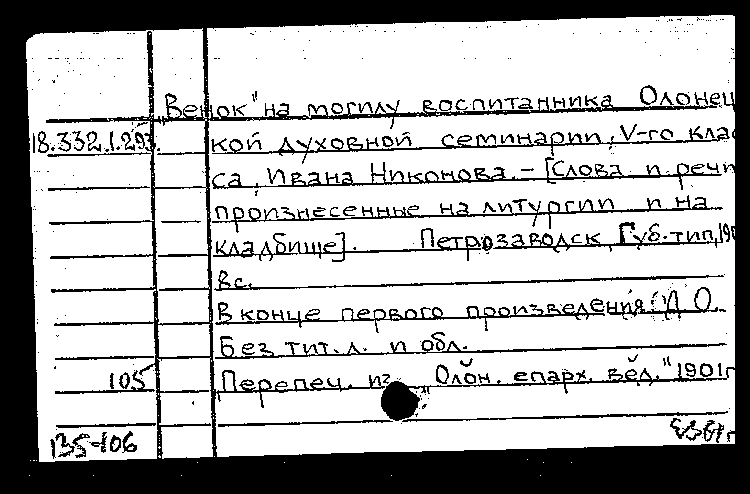 „Венок" на могилу воспитанника Олонец
18.332.1.293. кой духовной семинарии, V-го клас
са, Ивана Никонова. – [Слова и речи
произнесенные на литургии и на
кладбище]. Петрозаводск, Губ. тип, 190
8 с.
В конце первого произведения: Д. О.
Без тит. л. и обл.
105 „Перепеч. из „Олон. епарх. вед." 1901г
135-106